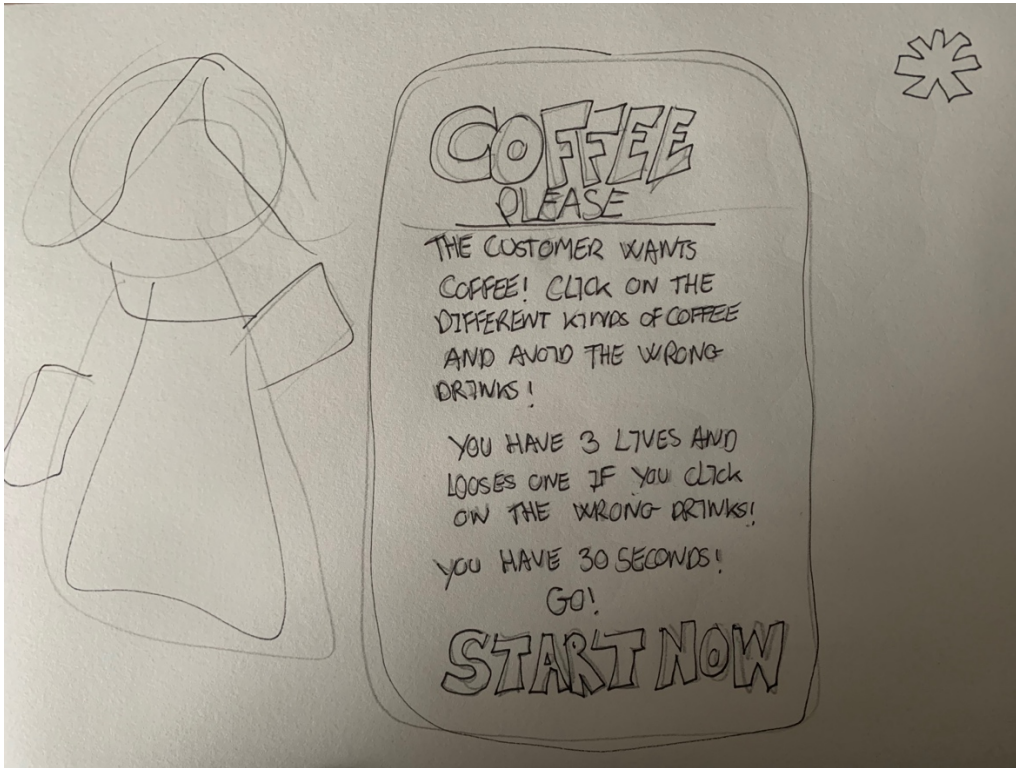 COFFEE
PLEASE
THE CUSTOMER WANTS
COFFEE! CLICK ON THE
DIFFERENT KINDS OF COFFEE
AND AVOID THE WRONG
DRINKS!
YOU HAVE 3 LIVES AND
LOOSES ONE IF YOU CLICK
ON THE WRONG DRINKS!
YOU HAVE 30 SECONDS!
GO!
START NOW